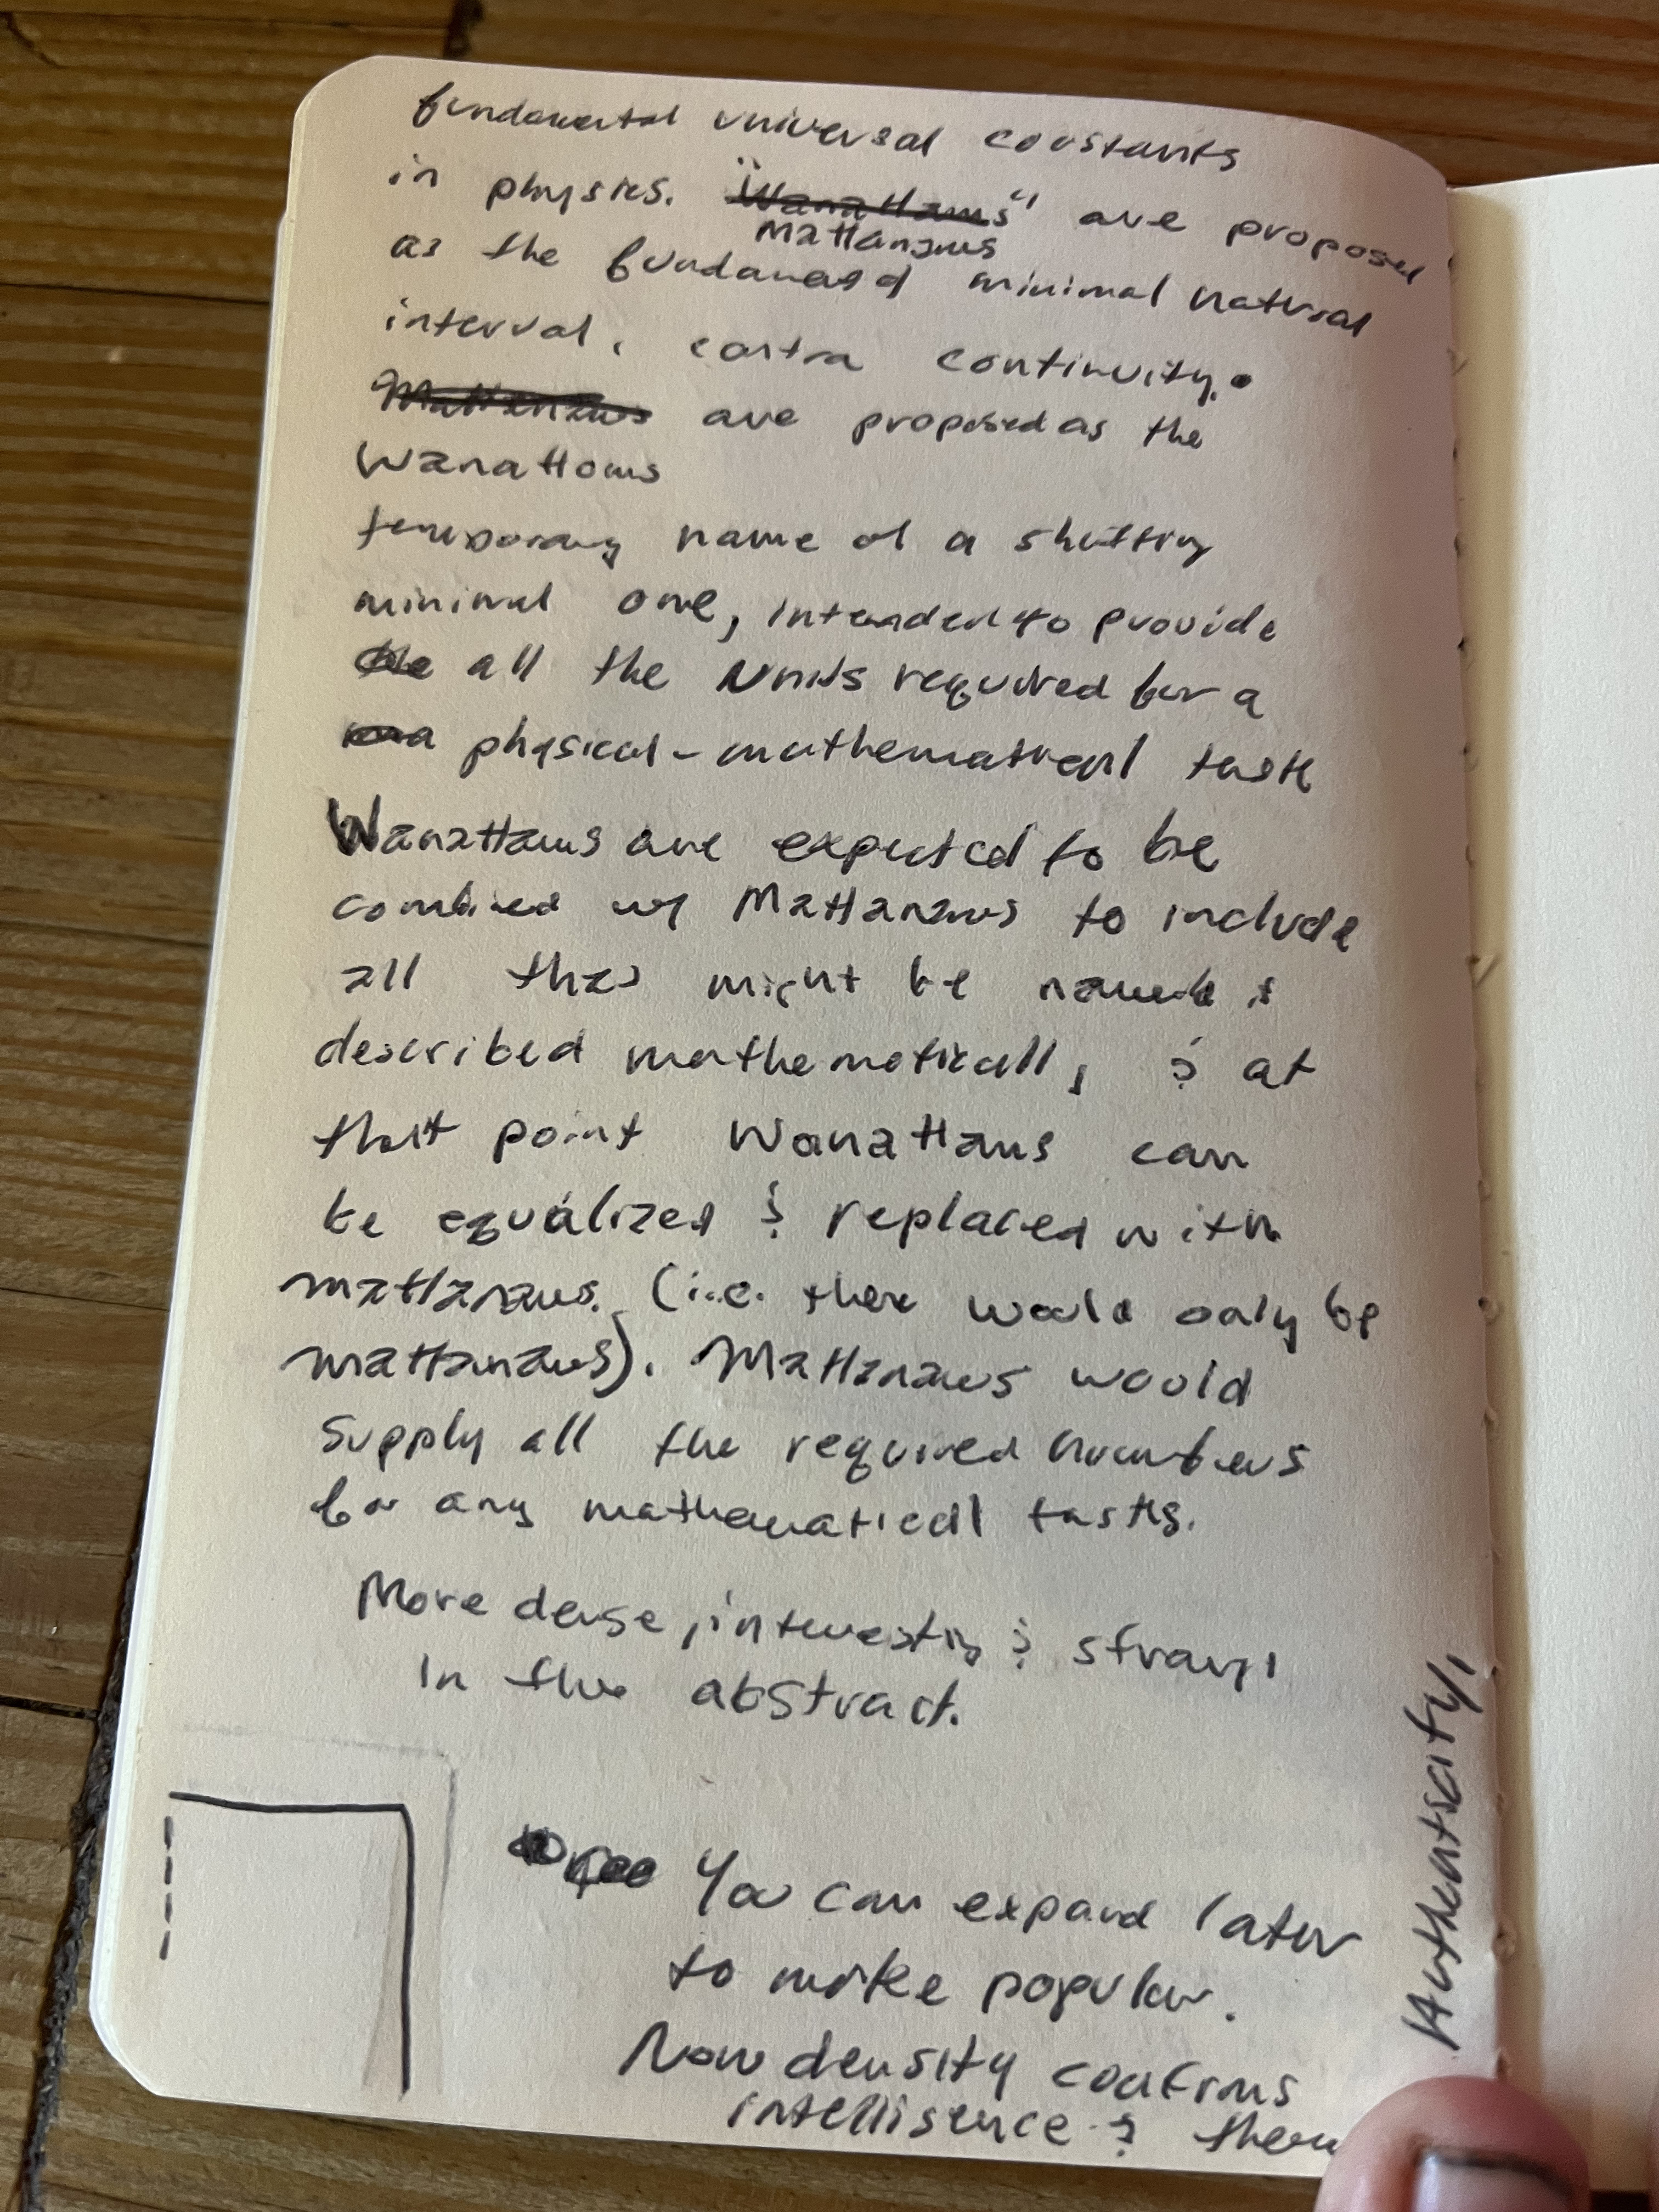 fundamental universal constants
in physics. "Wanattaws" are proposed
Mattanaws
as the fundamental minimal natural
interval, contra continuity.
Mattanaws are proposed as the
Wanattaws
temporary name of a shifting
minimal one, intended to provide
the all the units required for a
physical-mathematical task
Wanattaws are expected to be
combined w/ Mattanaws to include
all that might be named &
described mathematically, & at
that point Wanattaws can
be equalized & replaced with
mattanaws. (i.e. there would only be
mattanaws). Mattanaws would
supply all the required numbers
for any mathematical tasks.
More dense, interesting & strange
in the abstract.
You can expand later
to make popular.
Now density confirms
intelligence &
Authentscity,